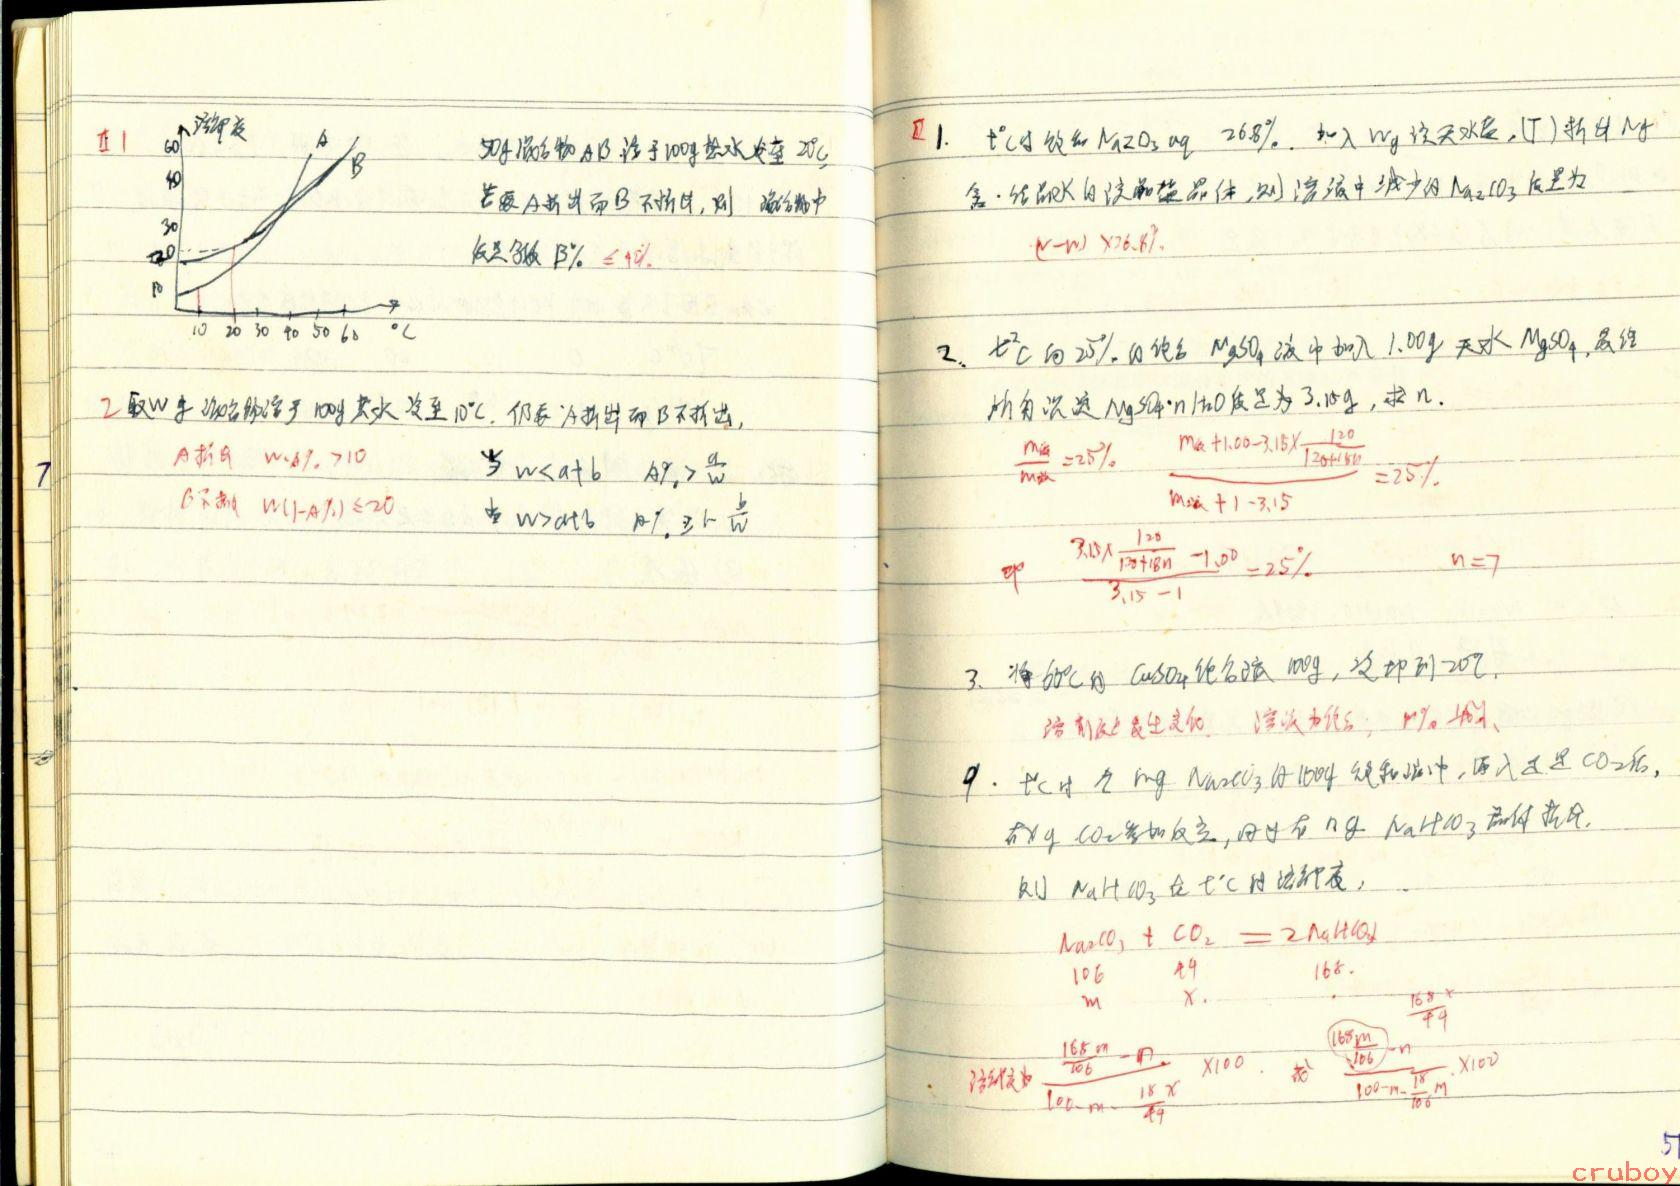 II 1
溶解度
60
40
30
20
10
A
B
10 20 30 40 50 60 °C
50g混合物AB溶于100g热水冷至20℃
若要A析出而B不析出,则 混合物中
质量分数 B% ≤40%
2 取W g 混合物溶于100g热水冷至10℃.仍要A析出而B不析出,
A析出 W·A%>10
B不析出 W(1-A%)≤20
当 w<a+b A%>a/w
当 w>a+b A% ≥1-b/w
7
II 1. t℃时饱和Na2CO3 aq 26.8%. 加入Wg该无水盐,(T)析出Ng
含·结晶水的该盐晶体,则溶液中减少的Na2CO3质量为
×26.8%
2. t℃的25%的饱和MgSO4液中加入1.00g无水MgSO4,最终
MgSO4·nH2O质量为3.15g,求n.
=25% m+1.00-3.15×120/(120+18n) / m+1-3.15 =25%
即 3.15×120/(120+18n)-1.00 / 3.15-1 =25% n=7
3. 将60℃的CuSO4饱和液100g,冷却到20℃.
溶剂 发生变化 溶液为饱和;
4. t℃时含mg Na2CO3的100g饱和液中,通入足量CO2后,
若xg CO2参加反应,同时有ng NaHCO3晶体析出.
则NaHCO3在t℃时溶解度,
Na2CO3 + CO2 = 2NaHCO3
106 44 168.
m x. 168x/44
溶解度为 (168m/106-n)/(100-m-18x/44) ×100. 或 (168m/106-n)/(100-m-18/106m) ×100
5
cruboy